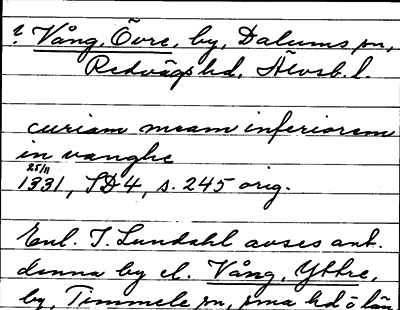 ? Vång, Övre, by, Dalums sn,
Redvägs hd, Älvsb. l.
curiam meam inferiorem
in vanghe
25/11
1331, SD4, s. 245 orig.
Enl. I. Lundahl avses ant.
denna by el. Vång, Yttre,
by, Timmele sn, sma hd o län